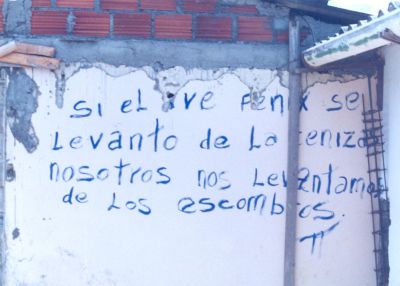 Si el ave fenix se
Levanto de La ceniza
nosotros nos Levantamos
de Los escombros.